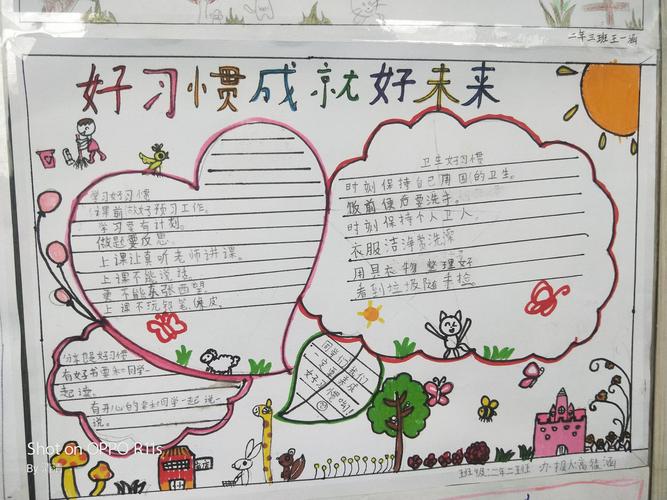 二年三班王一涵
好习惯成就好未来
学习好习惯
课前做好预习工作。
学习要有计划。
做题要反思
上课认真听老师讲课。
上课不能说话。
更不能东张西望。
上课不玩铅笔、橡皮。
卫生好习惯
时刻保持自己周围的卫生。
饭前便后要洗手。
时刻保持个人卫人、
衣服洁净常洗澡
用具衣物整理好
看到垃圾随手捡。
分享是好习惯
有好书要和同学一
起读。
有开心的事和同学一起说一
说。
同学们我们
一定要养成
好习惯哟!
Shot on OPPO R11s
By
班级:二年二班 办报人高